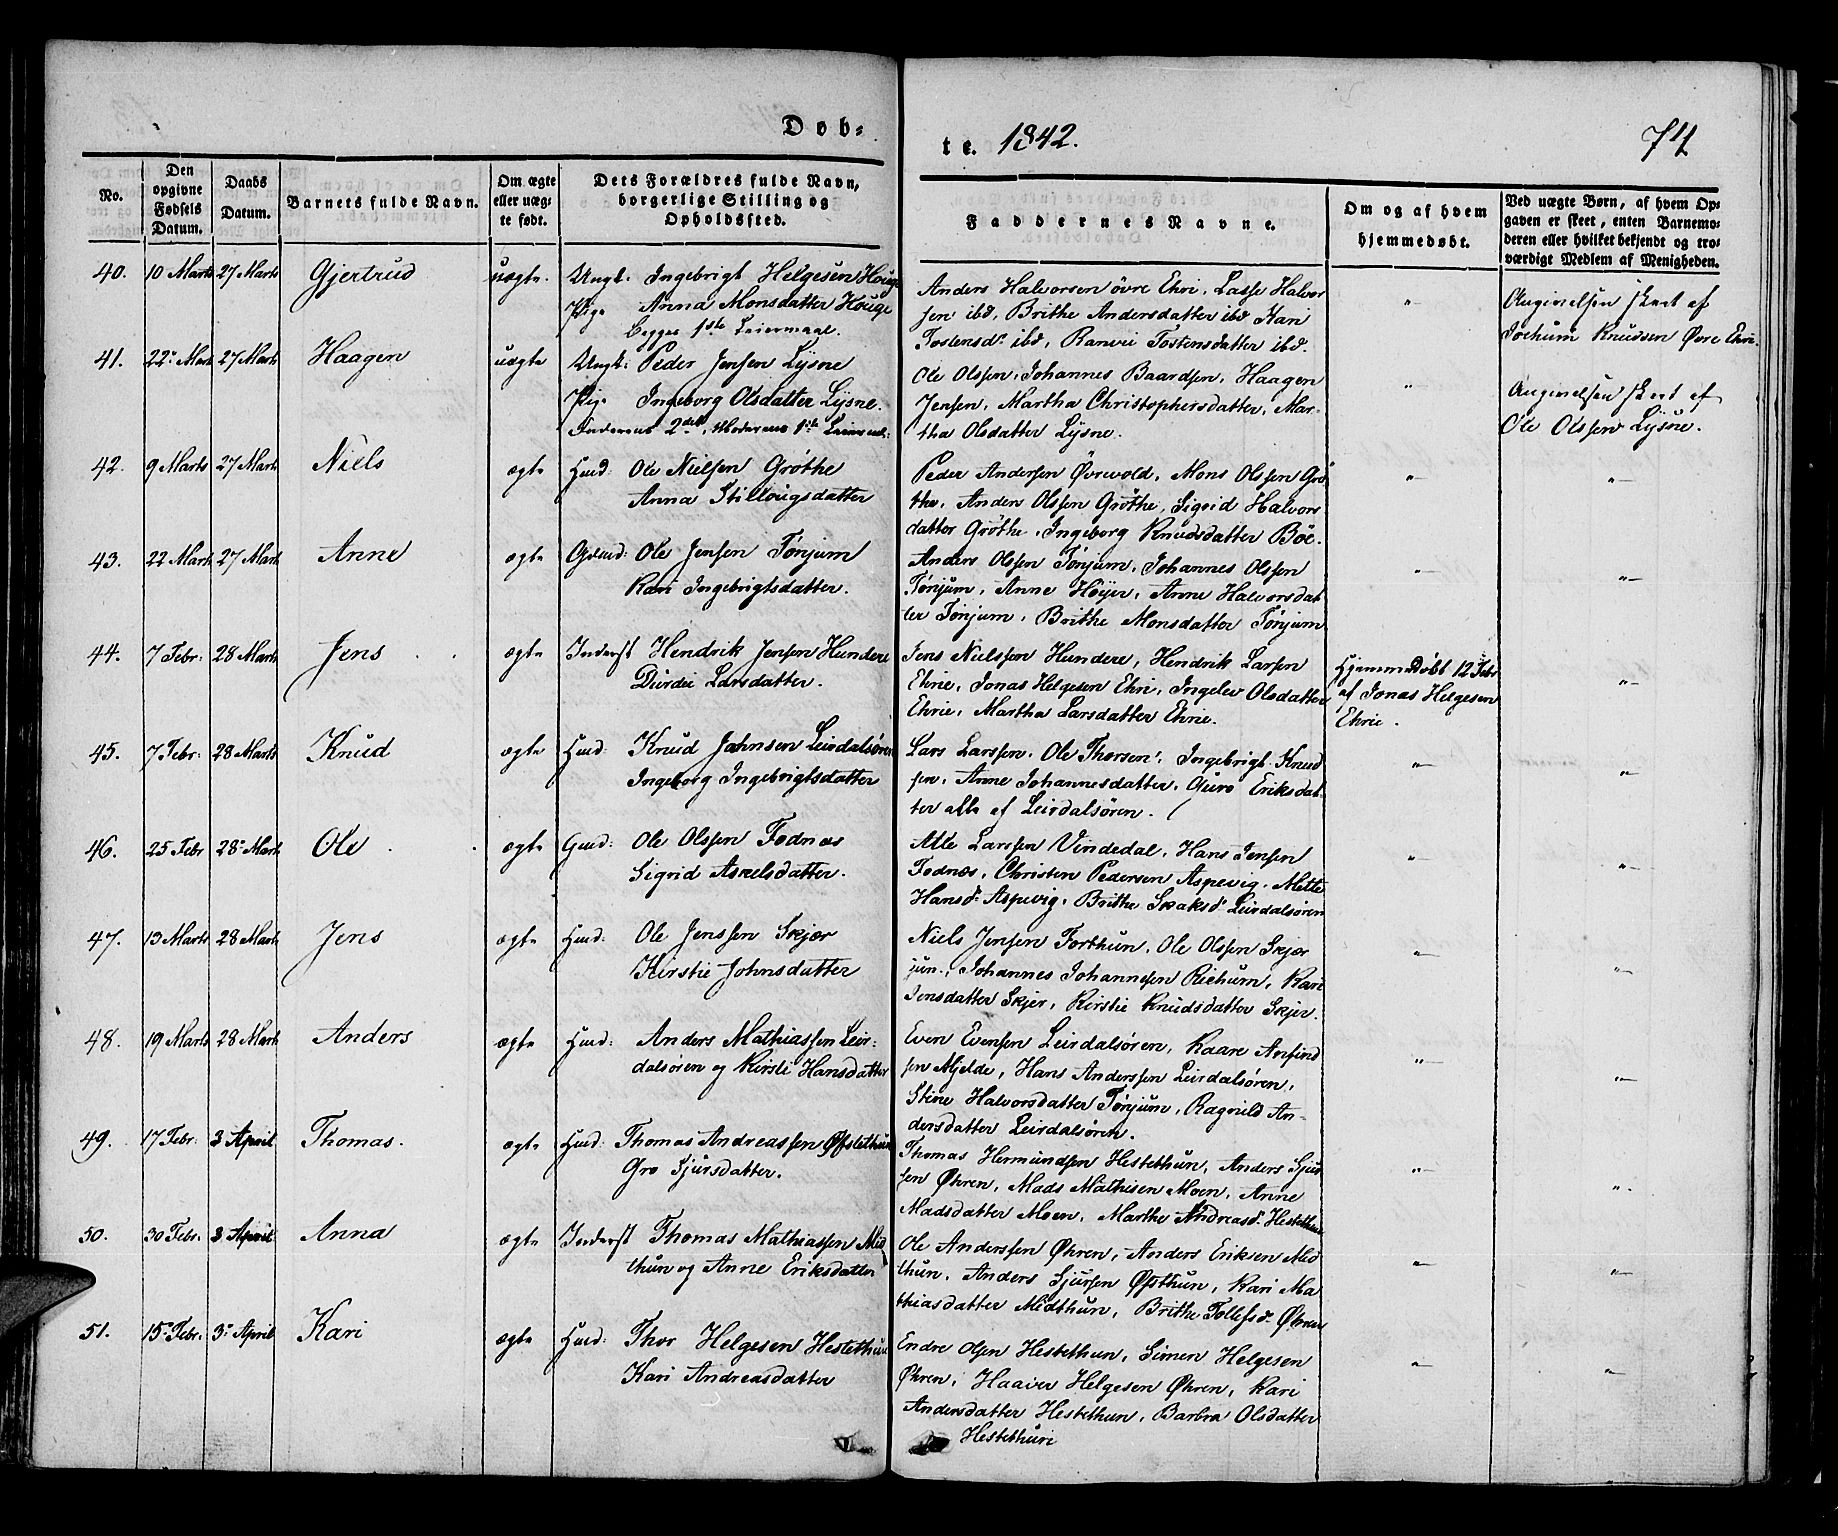 Døb-
te. 1842.
74
No.
Den opgivne Fødsels Datum.
Daabs Datum.
Barnets fulde Navn.
Om ægte eller uægte født.
Dets Forældres fulde Navn, borgerlige Stilling og Opholdssted.
Faddernes Navne.
Om og af hvem hjemmedøbt.
Ved uægte Børn, af hvem Opgaven er skeet, enten Barnemoderen eller hvilket bekjendt og troværdigt Medlem af Menigheden.
40. 10 Marts 27 Marts Gjertrud uægte. Ungk: Ingebrigt Helgesen Houge
Pige Anna Monsdatter Houge
Begges 1ste Leiermaal.
Anders Halvorsen övre Ehri, Lasse Halvor
sen ibd, Brithe Andersdatter ibd Kari
Tostensdr ibd, Ranvei Tostensdatter ibd.
"
Angivelsen skeet af
Jochum Knudsen Øvre Ehri.
41. 22 Marts 27 Marts Haagen uægte Ungk: Peder Jensen Lysne
Pige Ingeborg Olsdatter Lysne.
Faderens 2det, Moderens 1ste Leierm:
Ole Olssen, Johannes Baardsen, Haagen
Jensen, Martha Christophersdatter, Mar-
tha Olsdatter Lysne.
"
Angivelsen skeet af
Ole Olssen Lysne.
42. 9 Marts 27 Marts Niels ægte Huusmd: Ole Nielsen Grøthe
Anna Stillougsdatter
Peder Andersen Övrevold, Mons Olssen Grö
the, Anders Olssen Gröthe, Sigrid Halvors
datter Grøthe, Ingeborg Knudsdatter Böe.
"
"
43. 22 Marts 27 Marts Anne ægte Gdmd: Ole Jensen Tønjum
Kari Ingebrigtsdatter.
Anders Olssen Tønjum, Johannes Olssen
Tønjum, Anne Höyer, Anne Halvorsdat
ter Tønjum, Brithe Monsdatter Tønjum
"
"
44. 7 Febr: 28 Marts Jens ægte Inderst Hendrik Jensen Hundere
Durdei Larsdatter.
Jens Nielssen Hundere, Hendrik Larsen
Ehrie, Jonas Helgesen Ehri, Ingelev Olsdatter
Ehrie, Martha Larsdatter Ehrie.
Hjemmedöbt 12 Febr
af Jonas Helgesen
Ehrie.
"
45. 7 Febr: 28 Marts Knud ægte Hmd: Knud Johnsen Leirdalsören
Ingeborg Ingebrigtsdatter
Lars Larssen, Ole Thorsen, Ingebrigt Knud
sen, Anne Johannesdatter, Guro Eriksdat-
ter alle af Leirdalsören.
"
"
46. 25 Febr 28 Marts Ole ægte Gmd: Ole Olssen Fodnæs
Sigrid Askelsdatter.
Atle Larssen Vindedal, Hans Jensen
Fodnæs, Christen Pedersen Aspevig, Mette
Hansdr Aspevig, Brithe Skaksdr Leirdalsören
"
"
47. 13 Marts 28 Marts Jens ægte Hmd: Ole Jenssen Skjær
Kirstie Johnsdatter
Niels Jensen Forthun, Ole Olssen Skjær
jun., Johannes Johannesen Richum, Kari
Jensdatter Skjer, Kirstie Knudsdatter Skjer.
"
"
48. 19 Marts 28 Marts Anders ægte Hmd: Anders Mathiassen Leir-
dalsören og Kirsti Hansdatter
Even Evensen Leirdalsören, Kaare Anfind
sen Mjelde, Hans Anderssen Leirdalsören,
Stine Halvorsdatter Tønjum, Ragnild An-
dersdatter Leirdalsören.
"
"
49. 17 Febr: 3 April Thomas. ægte Hmd: Thomas Andreassen Øfstethun
Gro Sjursdatter.
Thomas Hermundsen Hestethun, Anders Sjur
sen Øhren, Mads Mathisen Moen, Anne
Madsdatter Moen, Marthe Andreasdr Hestethun
"
"
50. 30 Febr. 3 April Anna ægte Inderst Thomas Mathiassen Mid
thun og Anne Eriksdatter
Ole Anderssen Øhren, Anders Eriksen Mid
thun, Anders Sjursen Øfsthun, Kari Ma
thiasdatter Midthun, Brithe Tollefsdr Øhren
"
"
51. 15 Febr. 3 April Kari ægte Hmd: Thor Helgesen Hestethun
Kari Andreasdatter
Endre Olsen Hestethun, Simen Helgesen
Øhren, Haaver Helgesen Øhren, Kari
Andersdatter Hestethun, Barbra Olsdatter
Hestethun
"
"